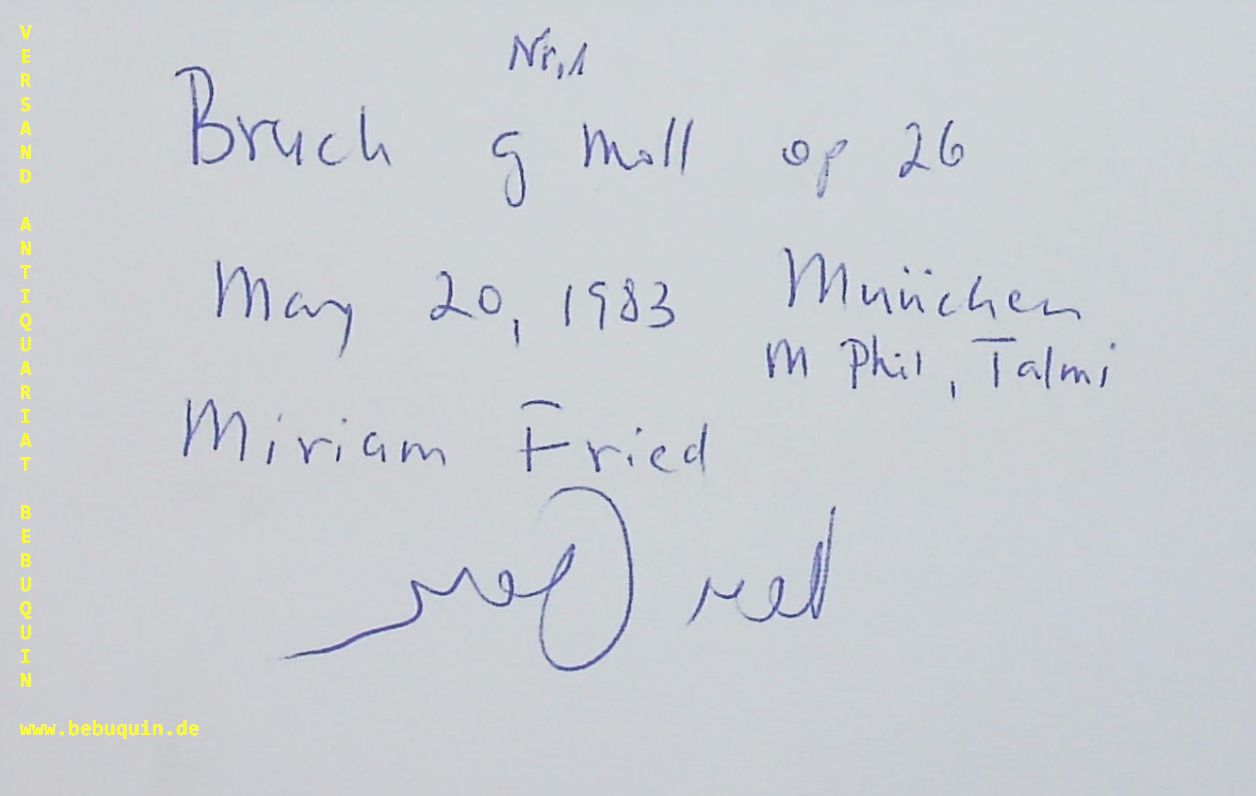 Nr, 1
Bruch g moll op 26
May 20, 1983 Müüchen
M Phil, Talmi
Miriam Fried
VERSAND ANTIQUARIAT BEBUQUIN
www.bebuquin.de